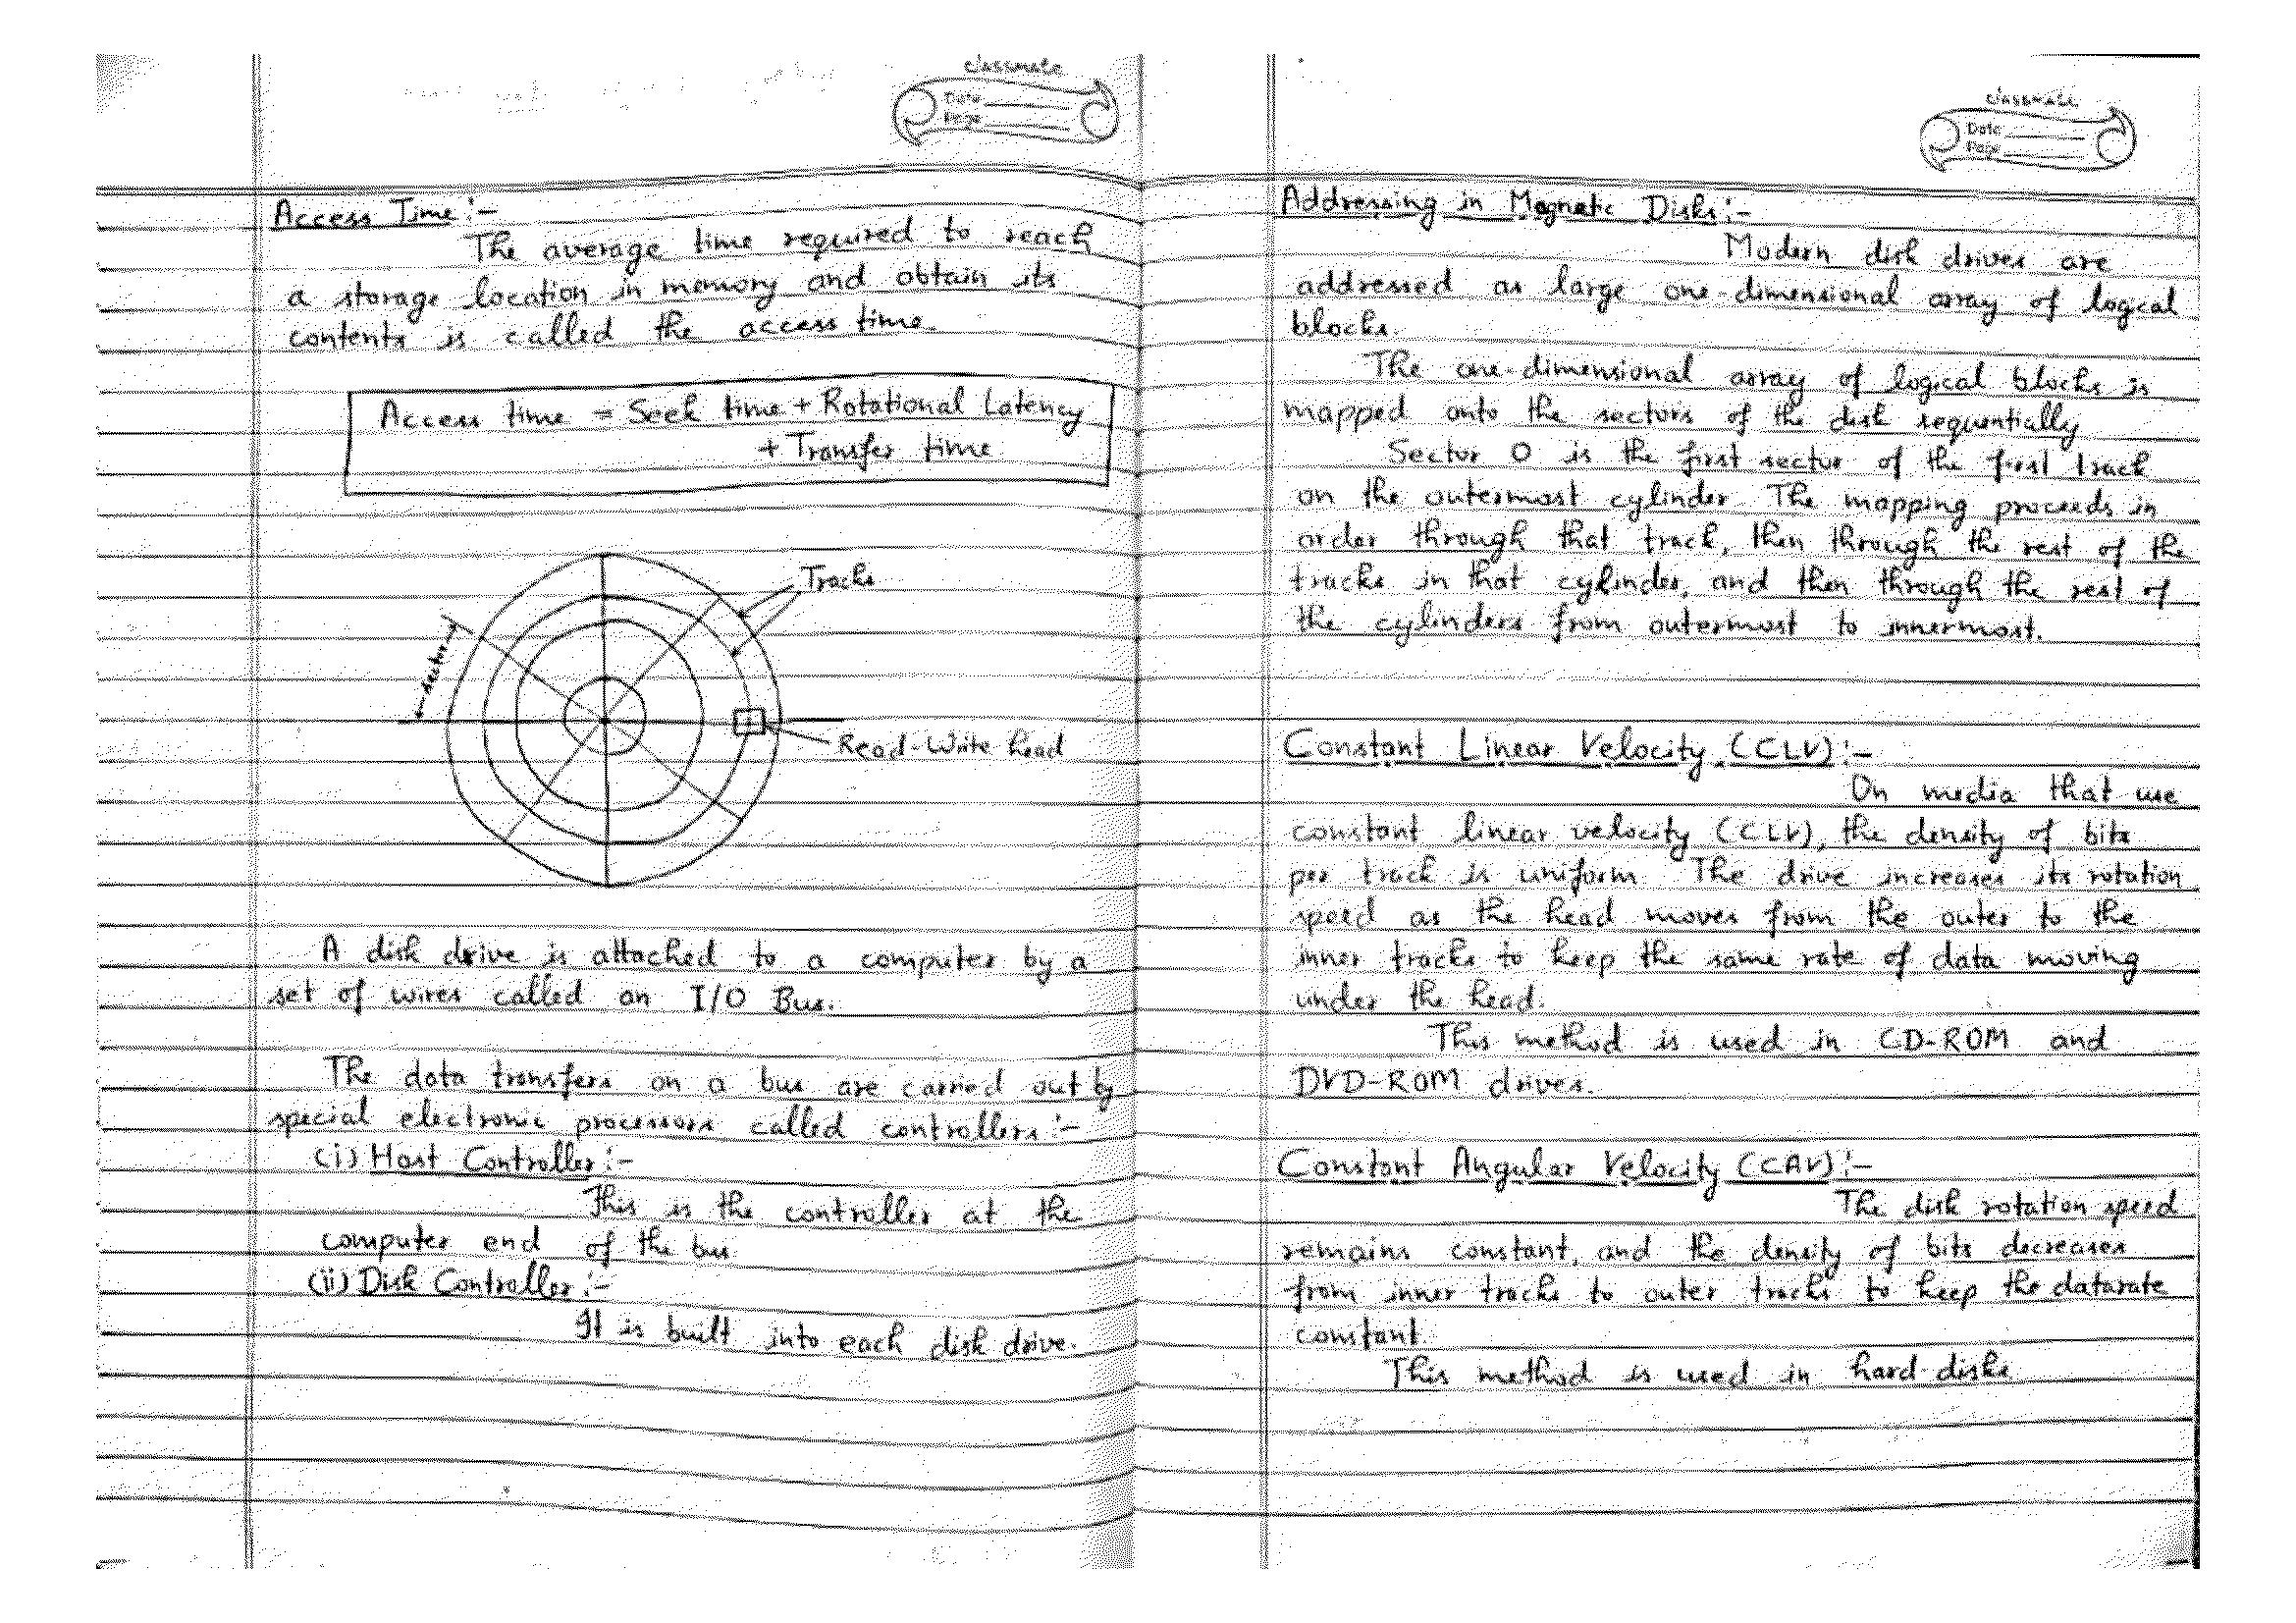 classmate
Date
Page
Access Time :-
The average time required to reach
a storage location in memory and obtain its
contents is called the access time.
Access time = Seek time + Rotational Latency
+ Transfer time
Tracks
sector
Read-Write head
A disk drive is attached to a computer by a
set of wires called an I/O Bus.
The data transfers on a bus are carried out by
special electronic processors called controllers :-
(i) Host Controller :-
This is the controller at the
computer end of the bus
(ii) Disk Controller :-
It is built into each disk drive.
classmate
Date
Page
Addressing in Magnetic Disks :-
Modern disk drives are
addressed as large one-dimensional array of logical
blocks.
The one-dimensional array of logical blocks is
mapped onto the sectors of the disk sequentially
Sector 0 is the first sector of the first track
on the outermost cylinder. The mapping proceeds in
order through that track, then through the rest of the
tracks in that cylinder, and then through the rest of
the cylinders from outermost to innermost.
Constant Linear Velocity (CLV) :-
On media that use
constant linear velocity (CLV), the density of bits
per track is uniform. The drive increases its rotation
speed as the head moves from the outer to the
inner tracks to keep the same rate of data moving
under the head.
This method is used in CD-ROM and
DVD-ROM drives.
Constant Angular Velocity (CAV) :-
The disk rotation speed
remains constant, and the density of bits decreases
from inner tracks to outer tracks to keep the datarate
constant.
This method is used in hard disks